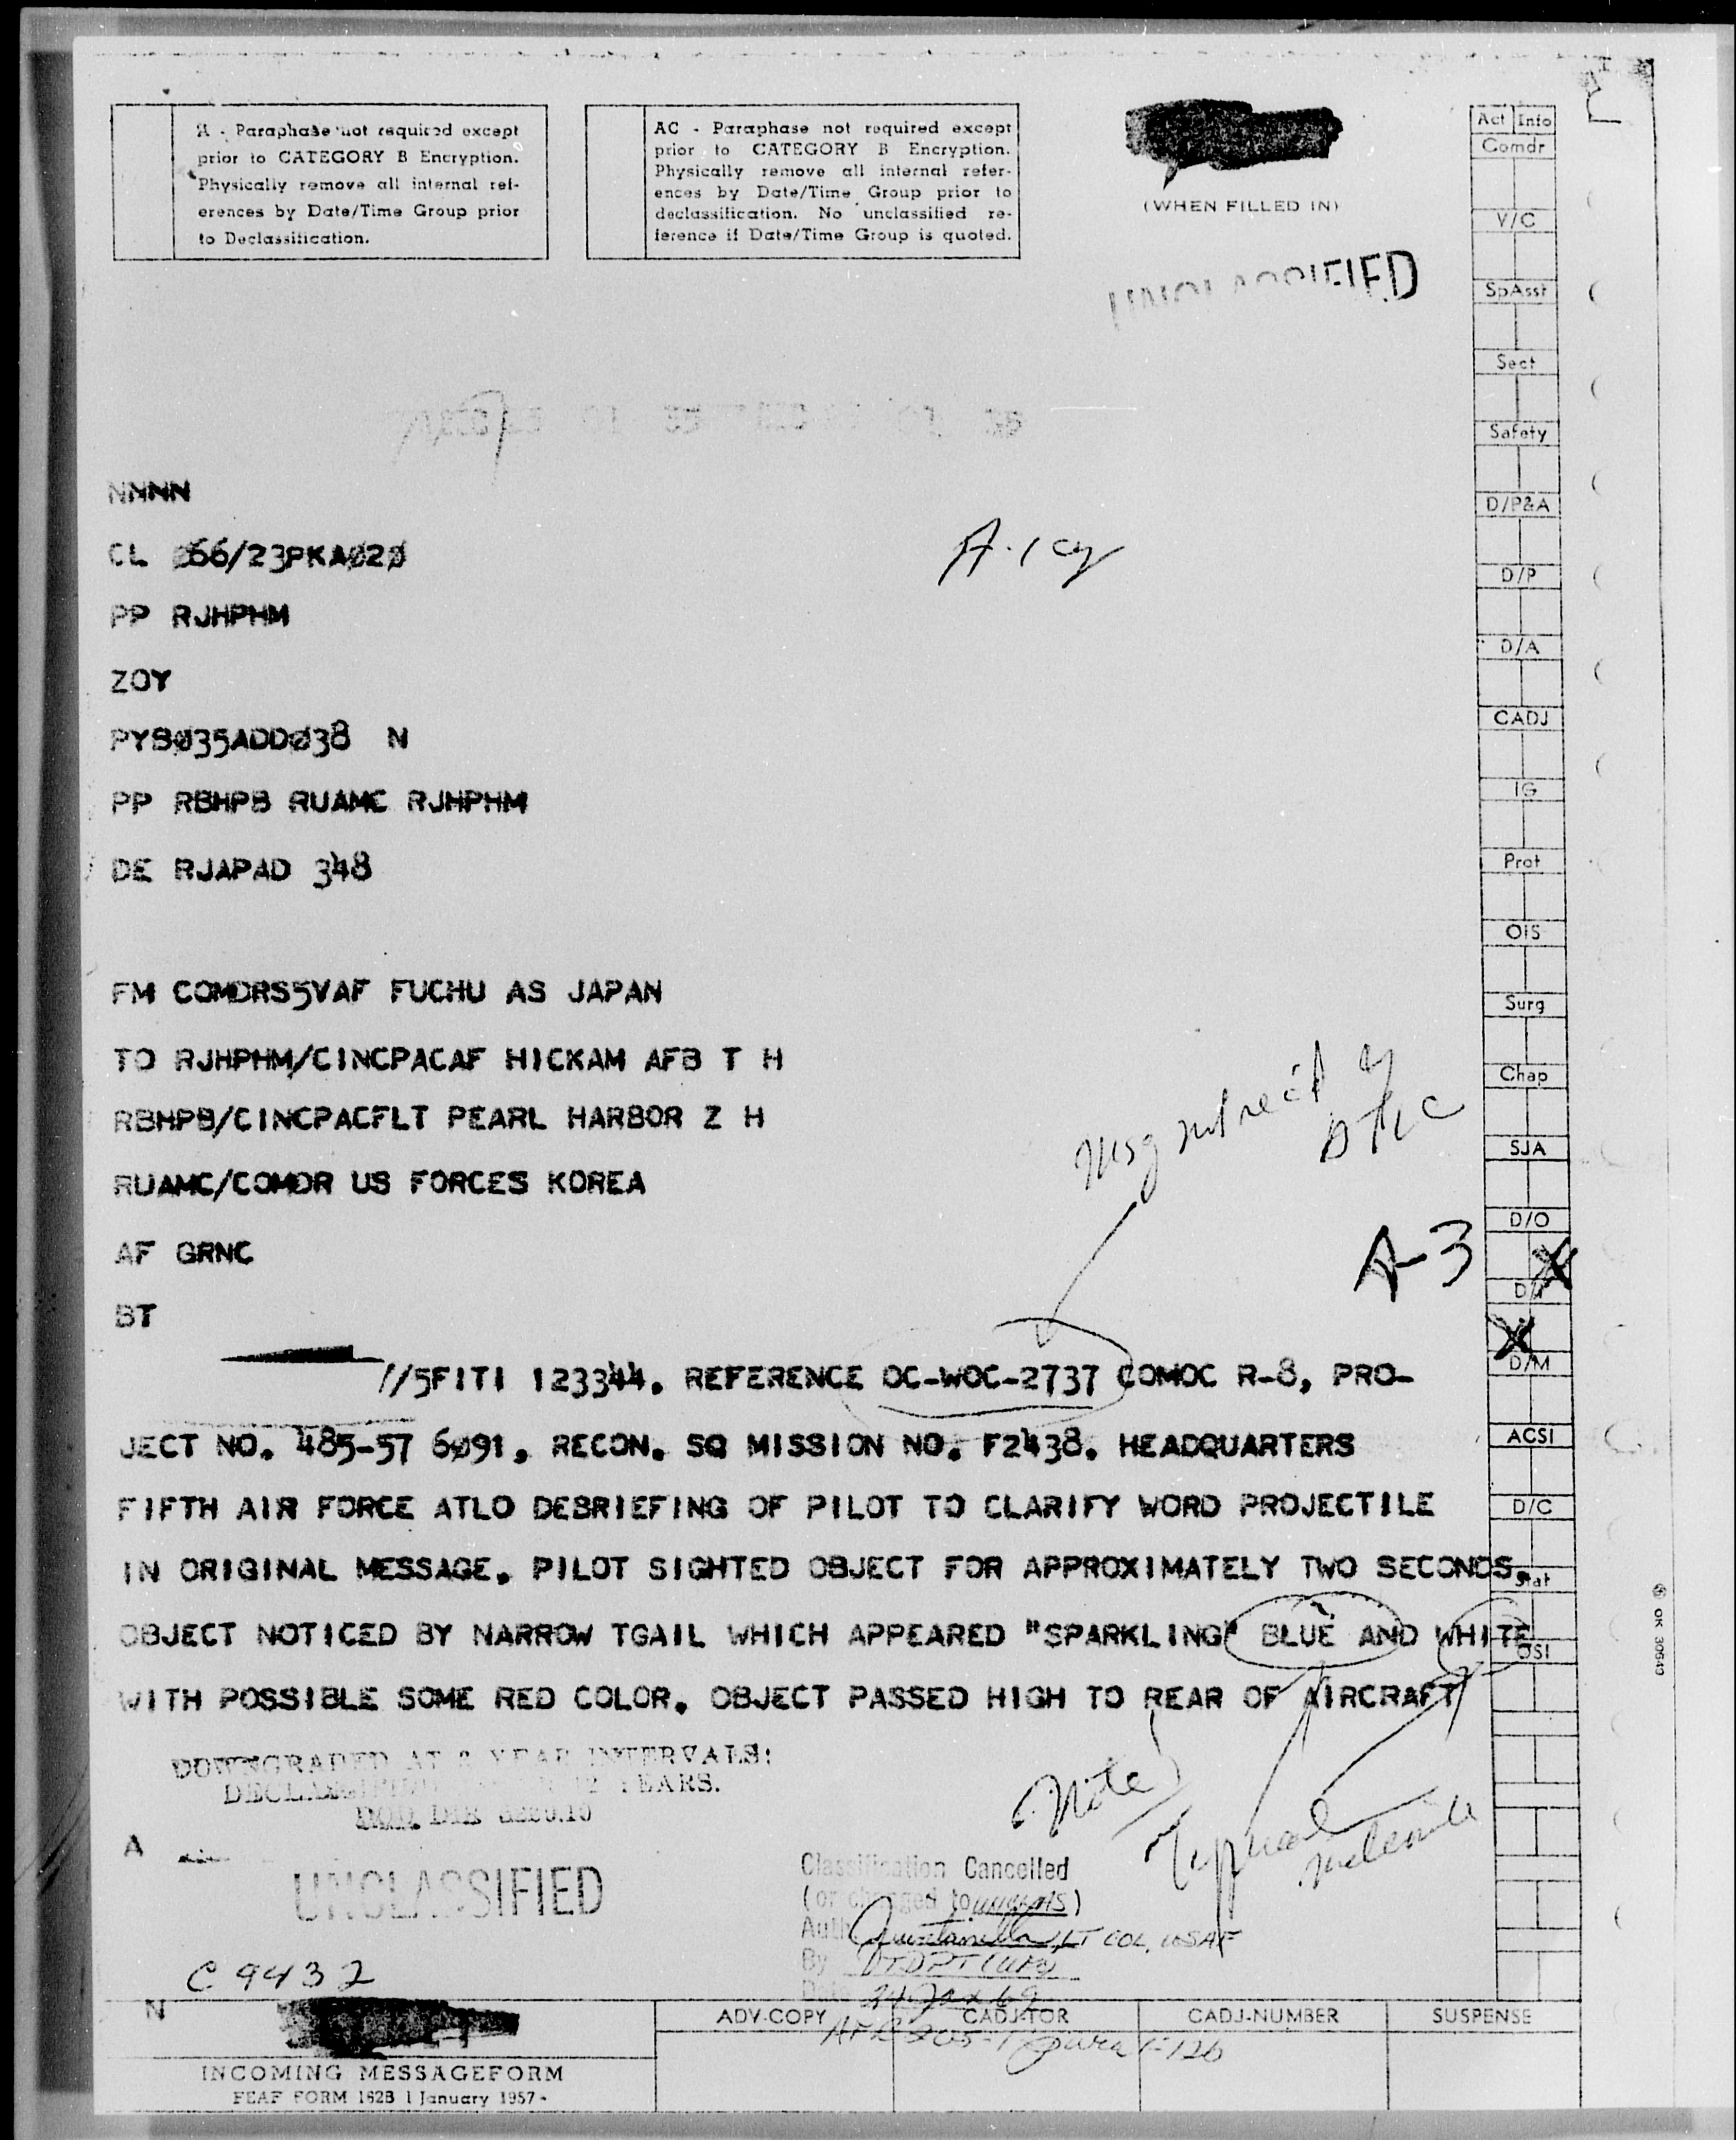 A - Paraphase not required except
prior to CATEGORY B Encryption.
Physically remove all internal ref-
erences by Date/Time Group prior
to Declassification.
AC - Paraphase not required except
prior to CATEGORY B Encryption.
Physically remove all internal refer-
ences by Date/Time Group prior to
declassification. No unclassified re-
ference if Date/Time Group is quoted.
(WHEN FILLED IN)
UNCLASSIFIED
Act Info
Comdr
V/C
SpAsst
Sect
Safety
D/P&A
D/P
D/A
CADJ
IG
Prot
OIS
Surg
Chap
SJA
D/O
D/I
D/M
ACSI
D/C
Stat
OSI
NNNN
CL Ø66/23PKAØ2Ø
A-1 cy
PP RJHPHM
ZOY
PYBØ35ADDØ38 N
PP RBHPB RUAMC RJHPHM
DE RJAPAD 348
FM COMDRS5VAF FUCHU AS JAPAN
TO RJHPHM/CINCPACAF HICKAM AFB T H
RBHPB/CINCPACFLT PEARL HARBOR Z H
RUAMC/COMDR US FORCES KOREA
AF GRNC
BT
Msg not rec'd
A-3
//5FITI 123344. REFERENCE OC-WOC-2737 COMOC R-8, PRO-
JECT NO. 485-57 6Ø91, RECON. SQ MISSION NO. F2438. HEADQUARTERS
FIFTH AIR FORCE ATLO DEBRIEFING OF PILOT TO CLARIFY WORD PROJECTILE
IN ORIGINAL MESSAGE. PILOT SIGHTED OBJECT FOR APPROXIMATELY TWO SECONDS.
OBJECT NOTICED BY NARROW TGAIL WHICH APPEARED "SPARKLING" BLUE AND WHITE
WITH POSSIBLE SOME RED COLOR. OBJECT PASSED HIGH TO REAR OF AIRCRAFT
DOWNGRADED AT 3 YEAR INTERVALS:
DECLASSIFIED 12 YEARS.
DOD DIR 5200.10
Note
Typical
A
UNCLASSIFIED
Classification Cancelled
(or changed to )
Auth Quintanilla, LT COL, USAF
By TDPT (UFO)
Date 24 Jan 69
AFR 205-1 para 1-126
C 9432
N
ADV-COPY
CADJ-TOR
CADJ-NUMBER
SUSPENSE
INCOMING MESSAGEFORM
FEAF FORM 162B 1 January 1957